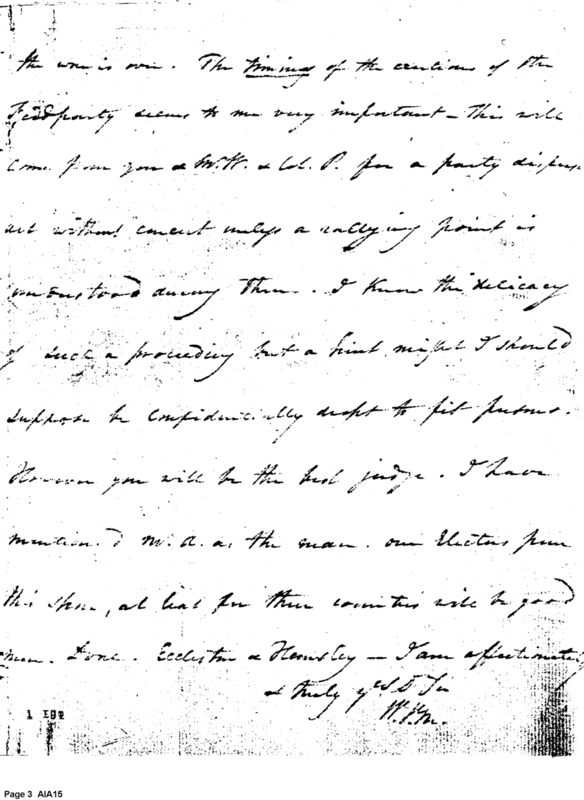 the war is over. The timing of the exertions of the
Fed party seems to me very important - this will
come from you & McH. & Col. P. for a party dispers'd
act without concert unless a rallying point is
understood among them. I know the delicacy
of such a proceeding but a hint might I should
suppose be confidentially dropt to fit persons.
However you will be the best judge. I have
mention'd Mr. A. as the man. our Electors from
this shore, at least for three counties will be good
men. Done. Eccleston & Hemsley - I am affectionately
& truly yrs D Sir
W.V.M.
1 192
Page 3 AIA15